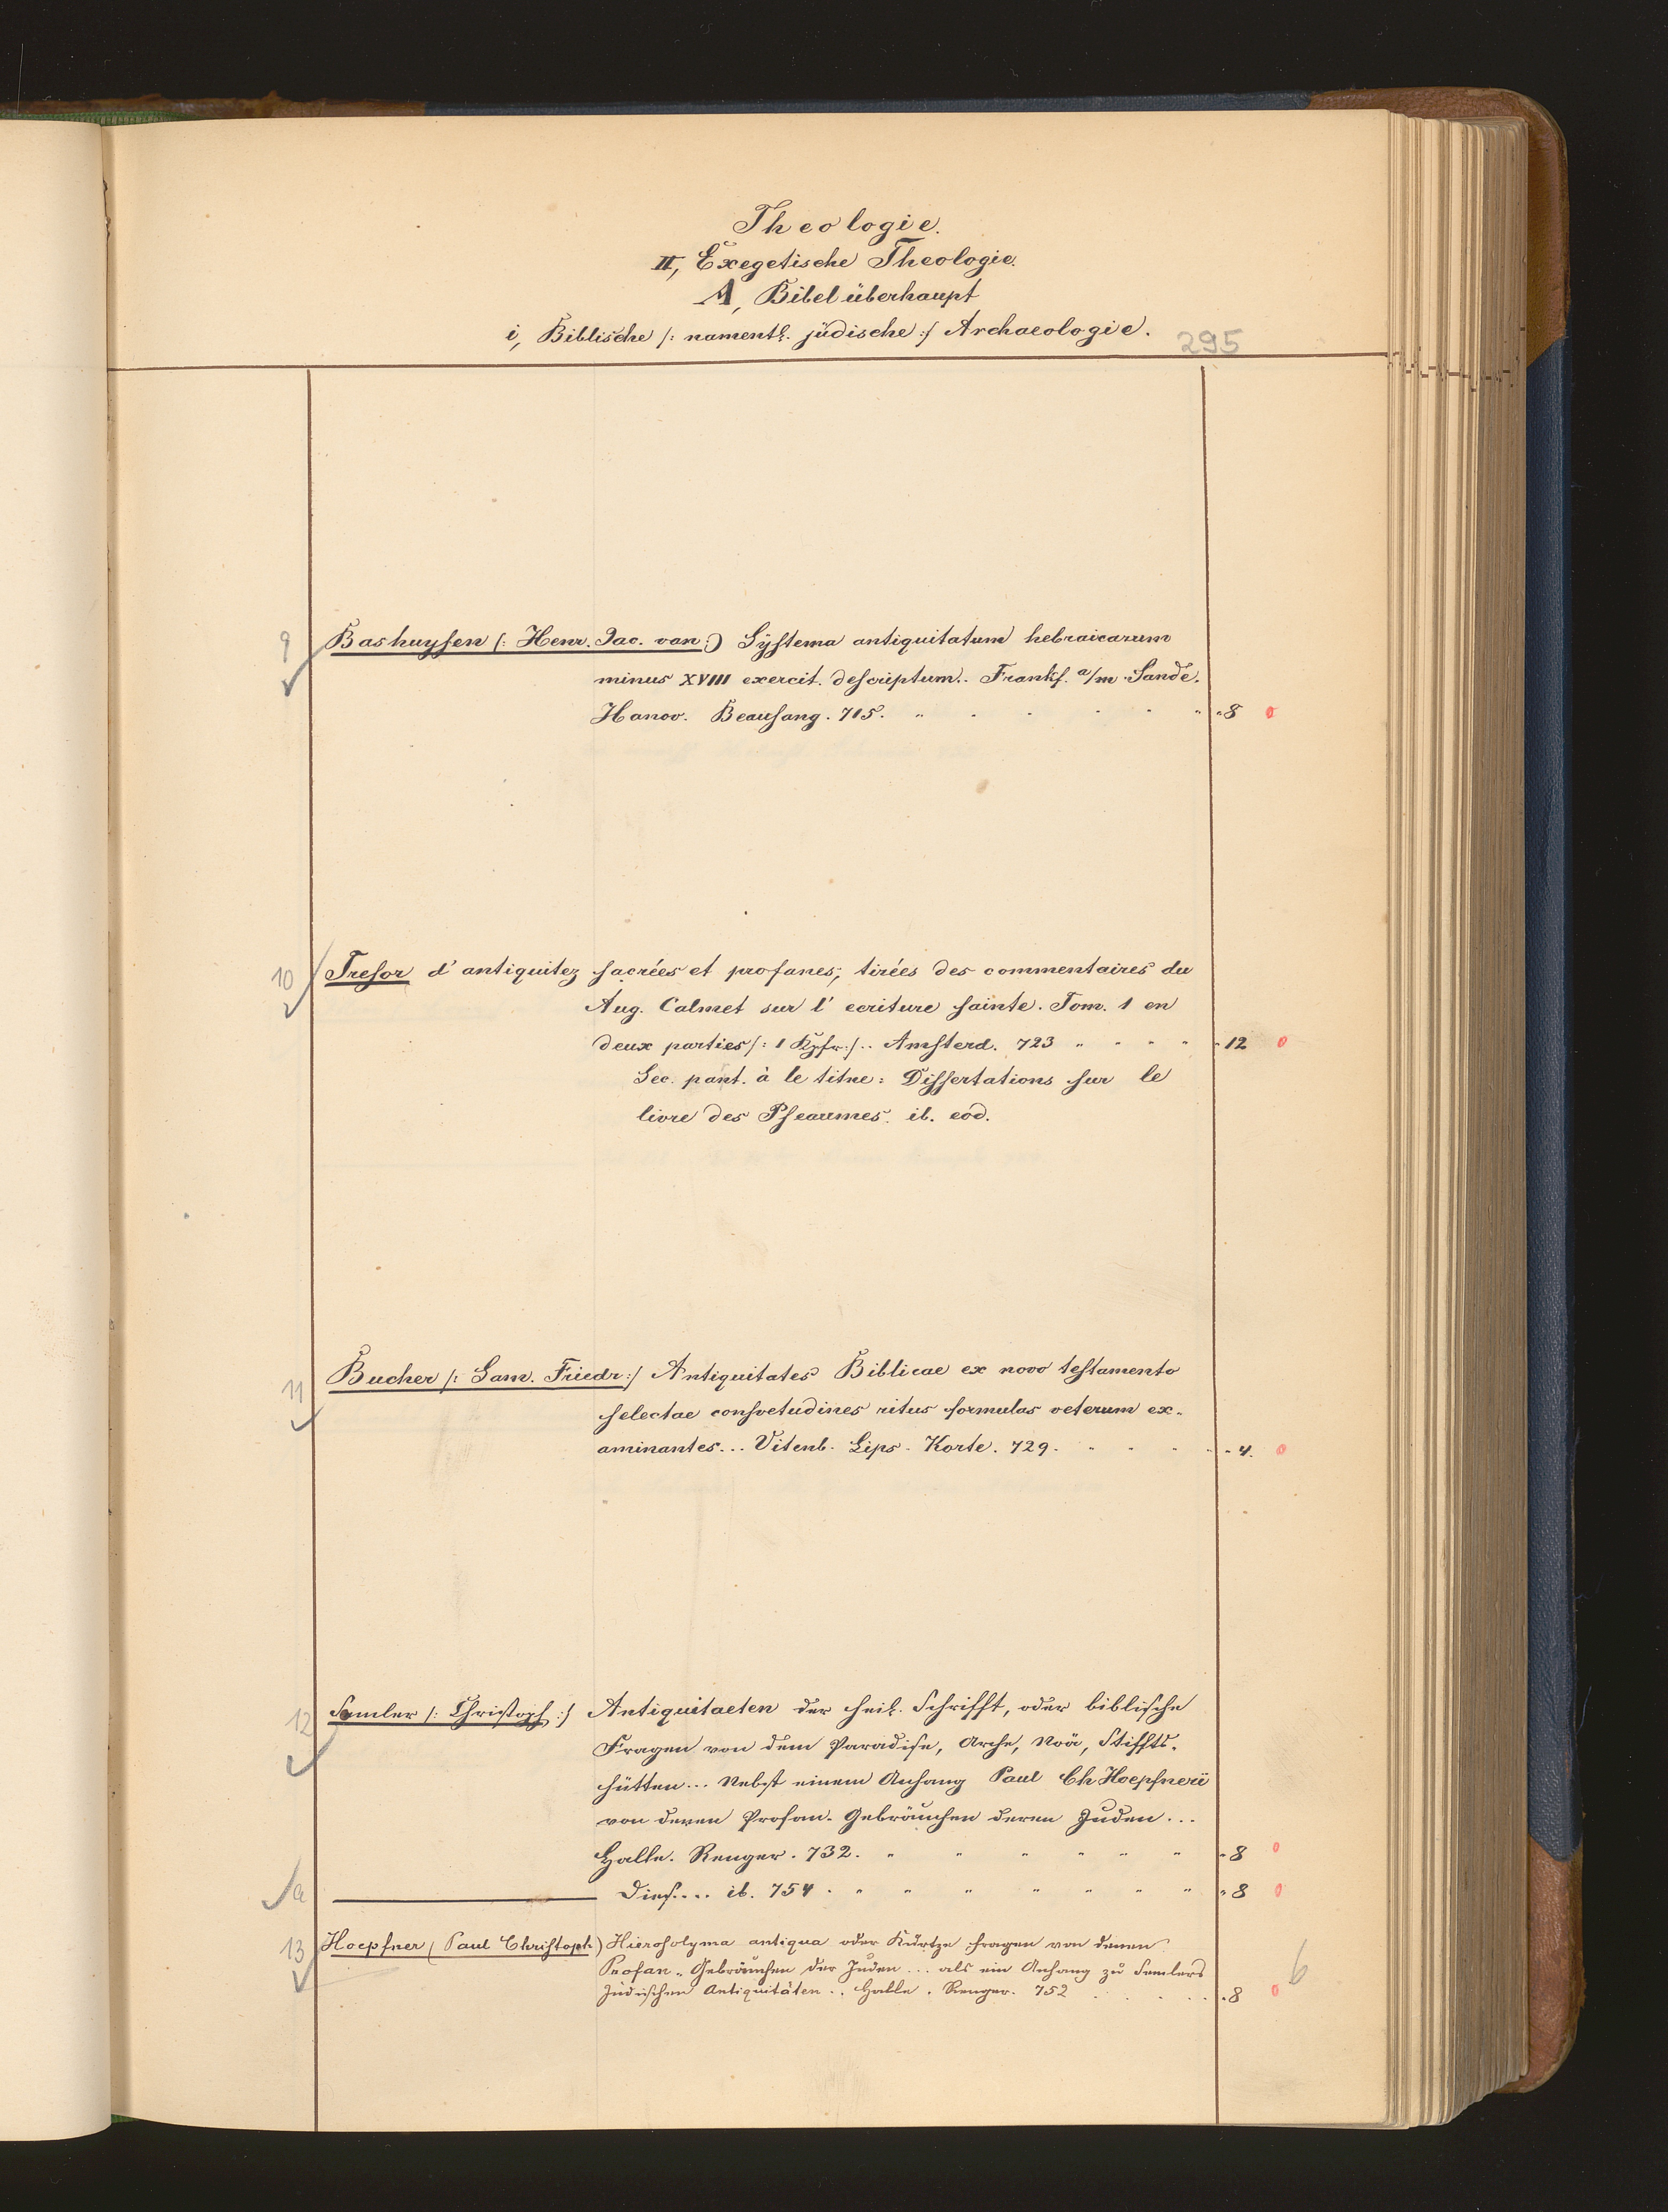 Theologie.
II, Exegetische Theologie.
A, Bibel überhaupt
i, Biblische /: namentl. jüdische :/ Archaeologie.
295
9 Bashuysen (: Henr. Jac. van :) Systema antiquitatum hebraicarum
minus XVIII exercit. descriptum.. Frankf. a/m Sande.
Hanov. Beausang. 715. " " " " " " "8 0
10 Tresor d'antiquitez sacrées et profanes, tirées des commentaires du
Aug. Calmet sur l'ecriture sainte. Tom. 1 en
deux parties /: 1 Kpfr :/ .. Amsterd. 723 " " " " "12 0
Sec. part. à le titre: Dissertations sur le
livre des Pseaumes. ib. eod.
11 Bucher /: Sam. Friedr :/ Antiquitates Biblicae ex novo testamento
selectae consvetudines ritus formulas veterum ex-
aminantes... Vitenb. Lips. Korte. 729. " " " " "4. 0
12 Semler /: Christoph :/ Antiquitaeten der heil. Schrifft, oder biblische
Fragen von dem Paradise, Arche, Noä, Stiffts-
hütten... Nebst einem Anhang Paul Ch Hoepfneri
von denen Profan-Gebräuchen derem Juden...
Halle. Renger. 732. " " " " " " "8 0
a Dies.... ib. 754. " " " " " " " "8 0
13 Hoepfner (Paul Christoph) Hierosolyma antiqua oder Kurtze Fragen von denen
Profan-Gebräuchen der Juden... als ein Anhang zu Semlers
Jüdischen Antiquitäten.. Halle. Renger. 752 . . . . . "8 0
6